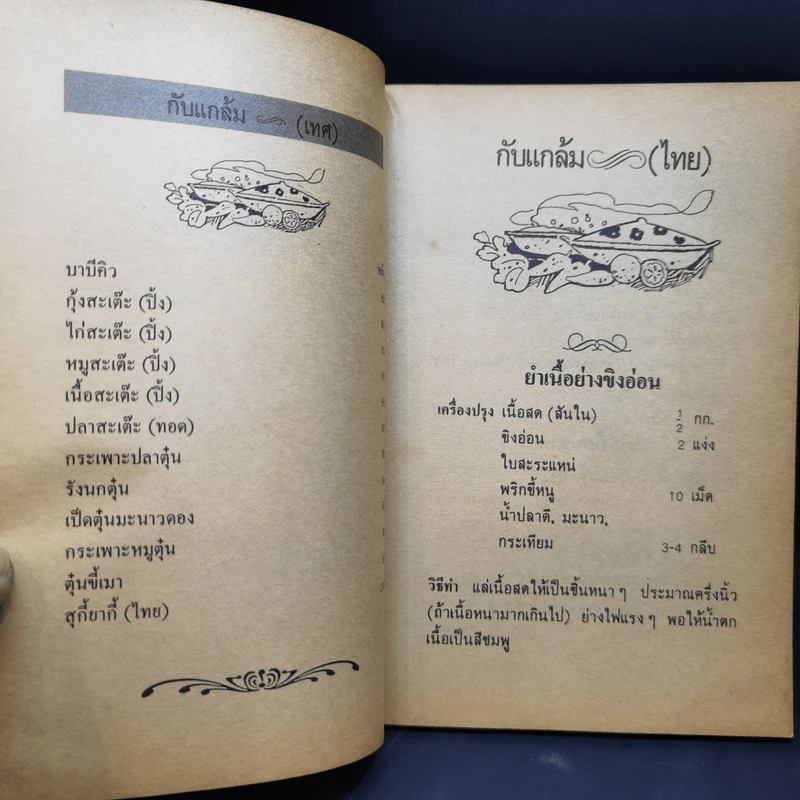 กับแกล้ม (เทศ)
บาบีคิว
กุ้งสะเต๊ะ (ปิ้ง)
ไก่สะเต๊ะ (ปิ้ง)
หมูสะเต๊ะ (ปิ้ง)
เนื้อสะเต๊ะ (ปิ้ง)
ปลาสะเต๊ะ (ทอด)
กระเพาะปลาตุ๋น
รังนกตุ๋น
เป็ดตุ๋นมะนาวดอง
กระเพาะหมูตุ๋น
ตุ๋นขี้เมา
สุกี้ยากี้ (ไทย)
กับแกล้ม (ไทย)
ยำเนื้อย่างขิงอ่อน
เครื่องปรุง เนื้อสด (สันใน) 1/2 กก.
ขิงอ่อน 2 แง่ง
ใบสะระแหน่
พริกขี้หนู 10 เม็ด
น้ำปลาดี, มะนาว,
กระเทียม 3-4 กลีบ
วิธีทำ แล่เนื้อสดให้เป็นชิ้นหนา ๆ ประมาณครึ่งนิ้ว
(ถ้าเนื้อหนามากเกินไป) ย่างไฟแรง ๆ พอให้น้ำตก
เนื้อเป็นสีชมพู